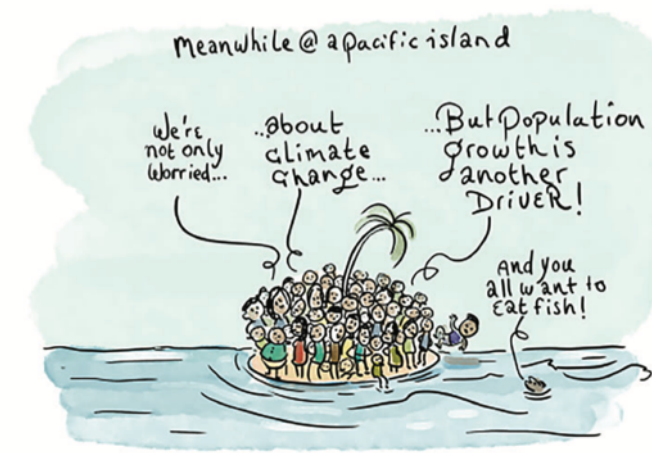 Meanwhile @ a pacific island
We're
not only
worried...
...about
climate
change...
...But Population
growth is
another
DRIVER!
And you
all want to
Eat fish!